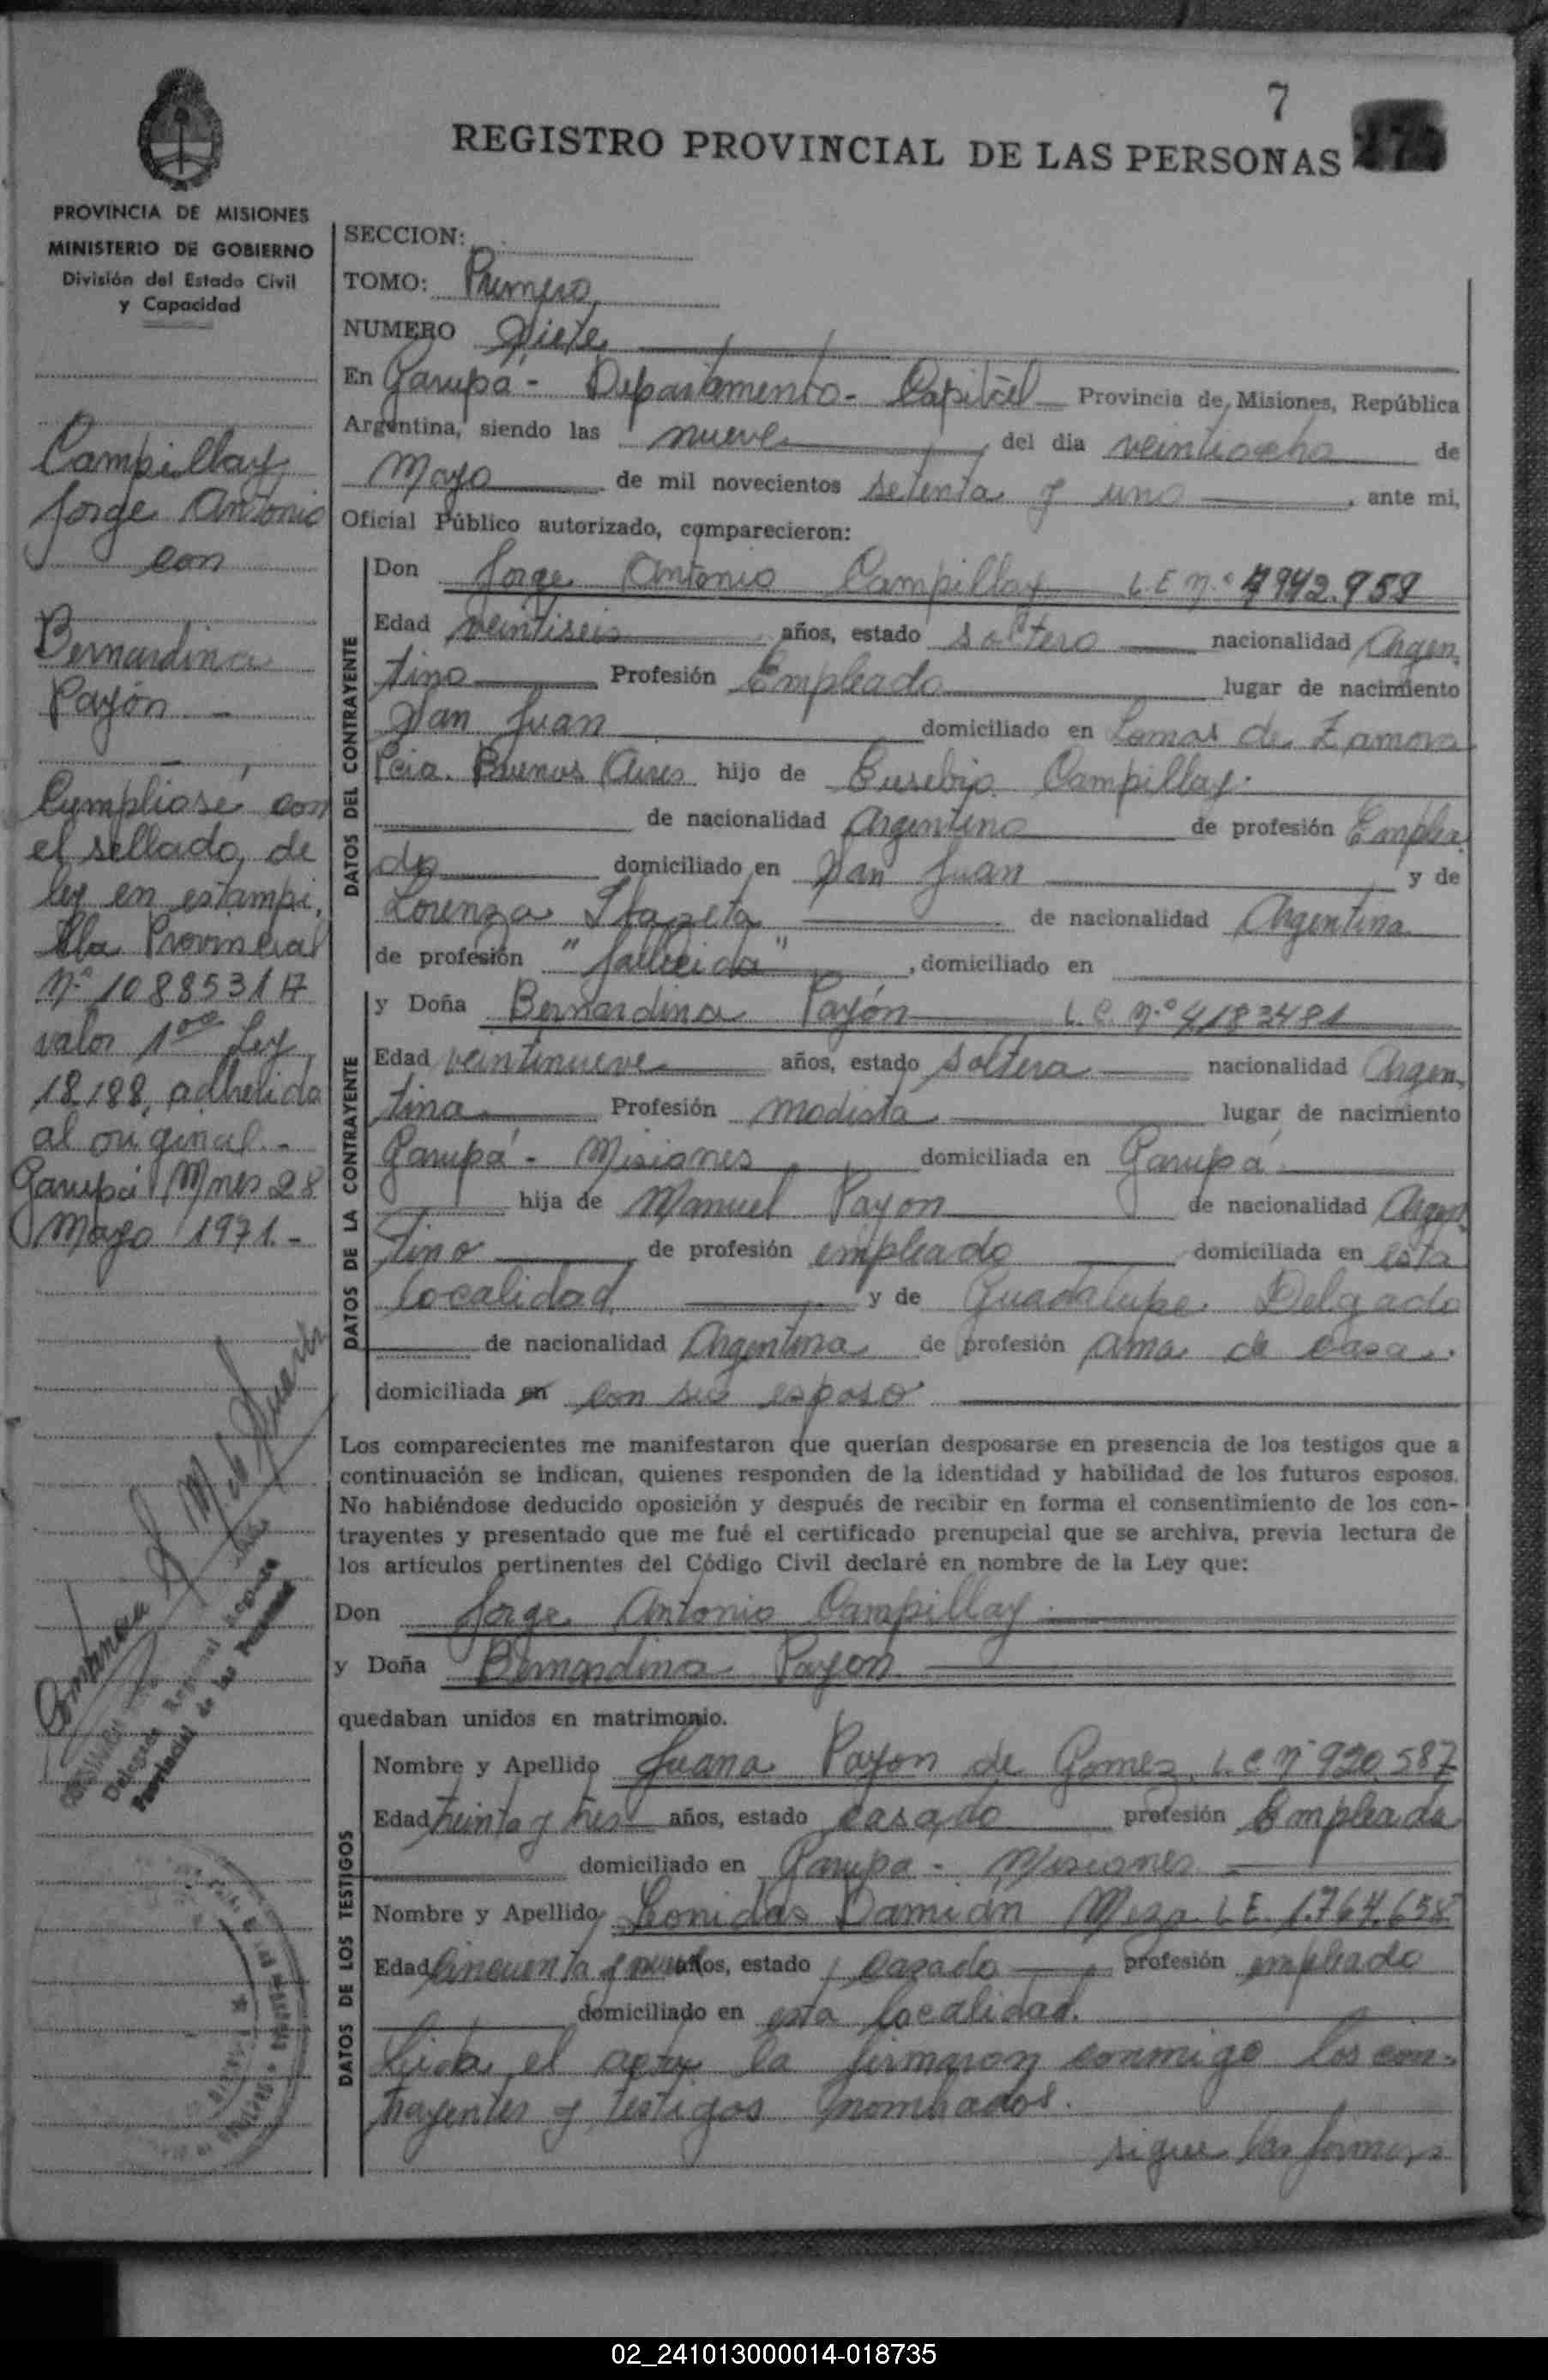 7
REGISTRO PROVINCIAL DE LAS PERSONAS
PROVINCIA DE MISIONES
MINISTERIO DE GOBIERNO
División del Estado Civil
y Capacidad
Campillay
Jorge Antonio
con
Bernardina
Payón -
Cumpliose con
el sellado de
ley en estampi,
lla Provincial
Nº 1088531 A
valor 1ºº Ley
18.188, adherida
al original.-
Garupá Mnes 28
Mayo 1971.-
Delegado
Provincial de las Personas
SECCION:
TOMO: Primero
NUMERO Siete
En Garupá - Departamento - Capital Provincia de Misiones, República
Argentina, siendo las nueve del dia veintiocho de
Mayo de mil novecientos setenta y uno, ante mi,
Oficial Público autorizado, comparecieron:
DATOS DEL CONTRAYENTE
Don Jorge Antonio Campillay L.E n.º 4942.959
Edad veintiseis años, estado soltero nacionalidad Argen,
tino Profesión Empleado lugar de nacimiento
San Juan domiciliado en Lomas de Zamora
Pcia. Buenos Aires hijo de Eusebio Campillay.
de nacionalidad Argentino de profesión Emplea,
do domiciliado en San Juan y de
Lorenza de nacionalidad Argentina
de profesión "fallecida", domiciliado en
DATOS DE LA CONTRAYENTE
y Doña Bernardina Payón L.C. n.º 4183481
Edad veintinueve años, estado soltera nacionalidad Argen,
tina Profesión modista lugar de nacimiento
Garupá - Misiones domiciliada en Garupá
hija de Manuel Payon de nacionalidad Argen,
tino de profesión empleado domiciliada en esta
localidad y de Guadalupe Delgado
de nacionalidad Argentina de profesión ama de casa.
domiciliada en con su esposo
Los comparecientes me manifestaron que querían desposarse en presencia de los testigos que a
continuación se indican, quienes responden de la identidad y habilidad de los futuros esposos.
No habiéndose deducido oposición y después de recibir en forma el consentimiento de los con-
trayentes y presentado que me fué el certificado prenupcial que se archiva, previa lectura de
los artículos pertinentes del Código Civil declaré en nombre de la Ley que:
Don Jorge Antonio Campillay
y Doña Bernardina Payon
quedaban unidos en matrimonio.
DATOS DE LOS TESTIGOS
Nombre y Apellido Juana Payon de Gomez, L.C Nº 920.587
Edad treinta y tres años, estado casado profesión Empleada
domiciliado en Garupa - Misiones
Nombre y Apellido Leonidas Damián Meza L E. 1.764.658
Edad cincuenta y años, estado casado profesión empleado
domiciliado en esta localidad.
Leida el acta la firmaron conmigo los con-
trayentes y testigos nombrados.
sigue las firmas
02_241013000014-018735